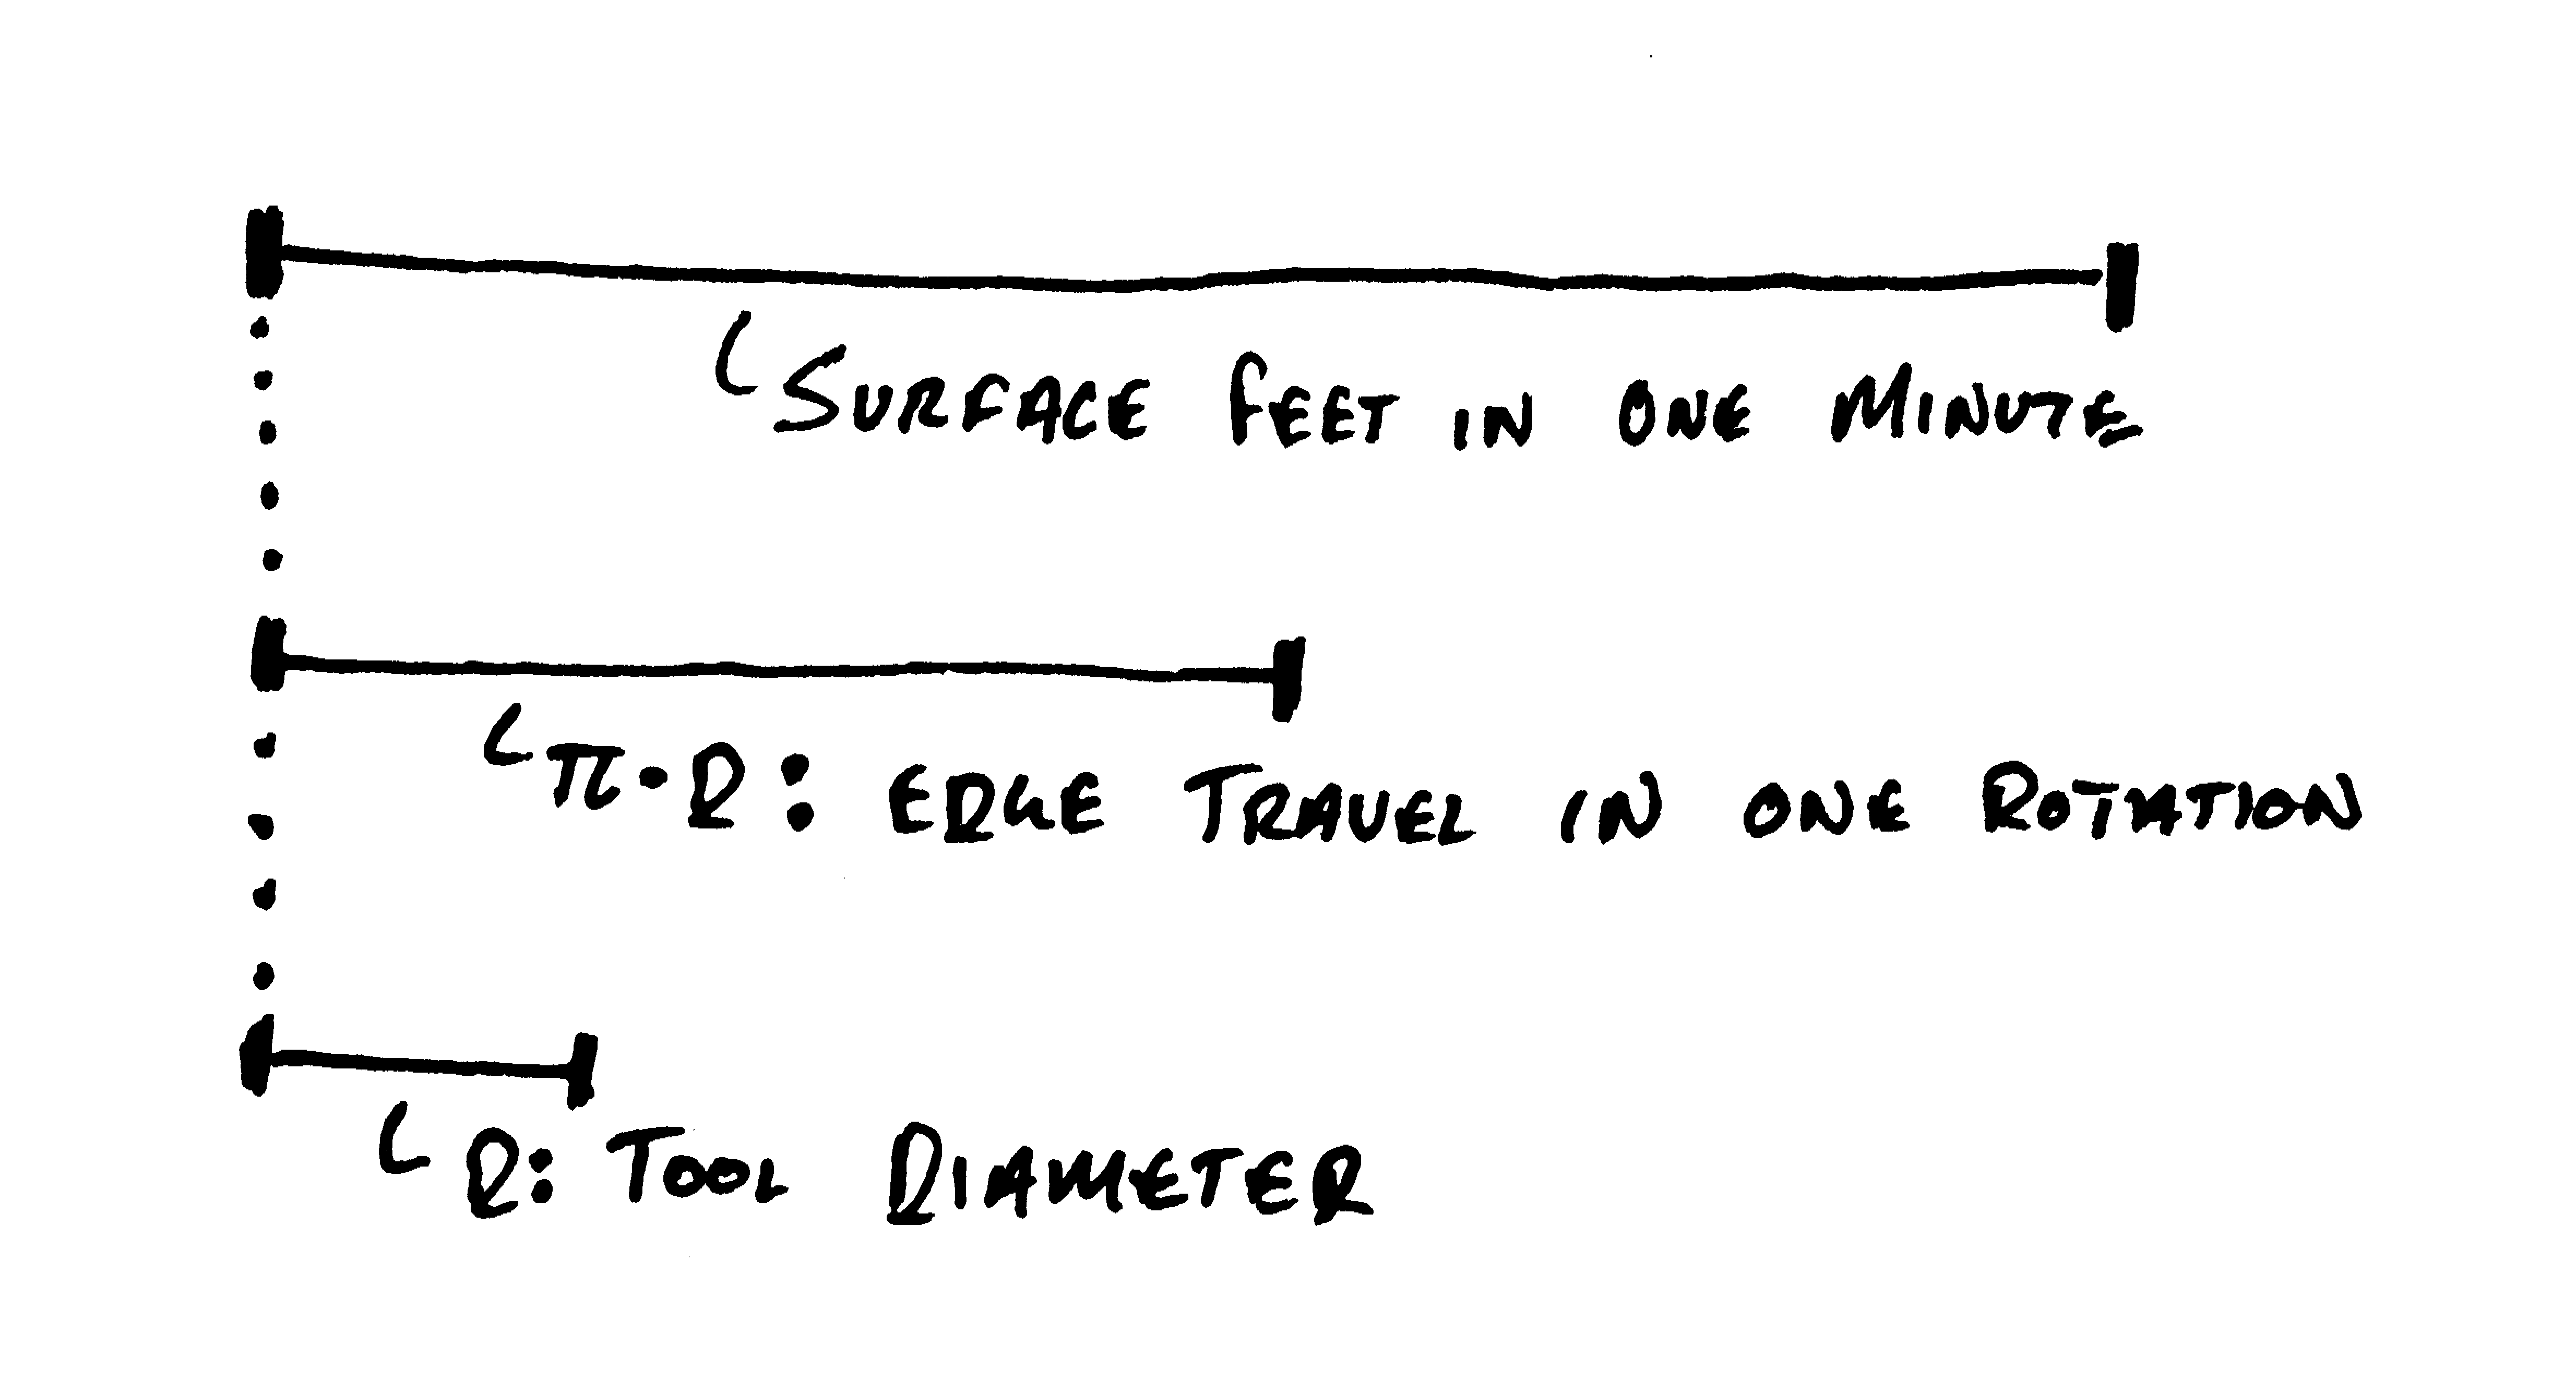 SURFACE FEET IN ONE MINUTE
π·D: EDGE TRAVEL IN ONE ROTATION
D: TOOL DIAMETER